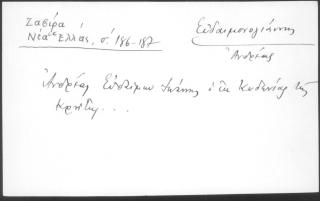 Ζαβίρα
Νέα Ἑλλάς, σ. 186-187
Εὐδαιμονοϊωάννης
Ἀνδρέας
Ἀνδρέας Εὐδαίμων Ἰωάννης ὁ ἐκ Κυδωνίας τῆς
Κρήτης...